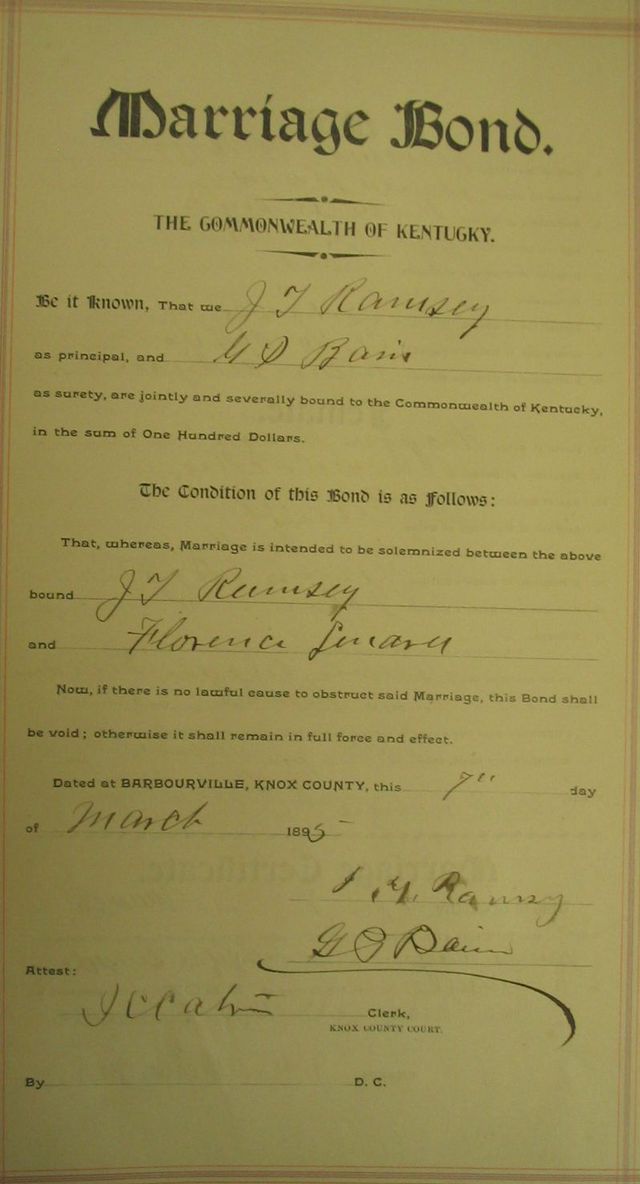 Marriage Bond.
THE COMMONWEALTH OF KENTUCKY.
Be it Known, That we J T Ramsey
as principal, and G D
as surety, are jointly and severally bound to the Commonwealth of Kentucky,
in the sum of One Hundred Dollars.
The Condition of this Bond is as Follows:
That, whereas, Marriage is intended to be solemnized between the above
bound J T Rumsey
and Florence
Now, if there is no lawful cause to obstruct said Marriage, this Bond shall
be void; otherwise it shall remain in full force and effect.
Dated at BARBOURVILLE, KNOX COUNTY, this 7" day
of March 1895
Ramsy
G D Bain
Attest:
Clerk,
KNOX COUNTY COURT.
By D. C.